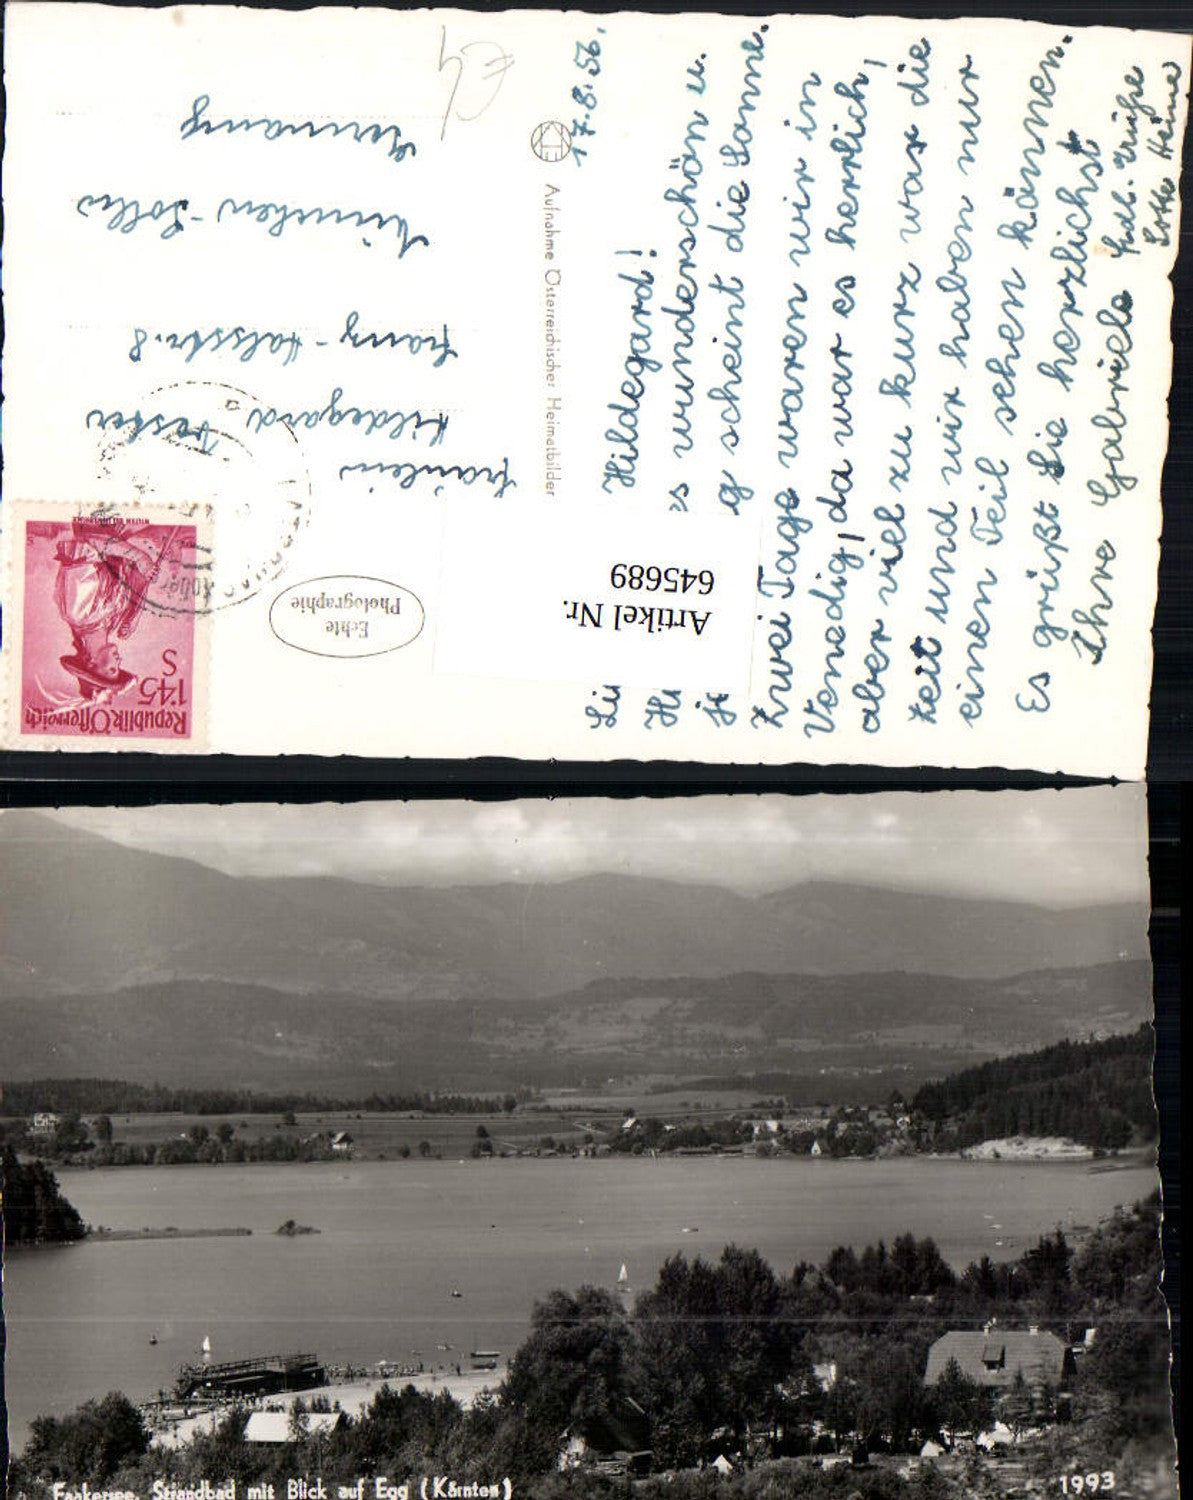 17.8.56.
Hildegard!
es wunderschön u.
scheint die Sonne.
Zwei Tage waren wir in
Venedig, da war es herrlich,
aber viel zu kurz war die
Zeit und wir haben nur
einen Teil sehen können.
Es grüßt Sie herzlichst
Ihre Gabriele
Grüße
Lotte Heime
Artikel Nr.
645689
Aufnahme Österreichischer Heimatbilder
Echte
Photographie
Republik Österreich
1'45
S
Fräulein
Hildegard
München-Solln
Germany
Faakersee, Strandbad mit Blick auf Egg (Kärnten)
1993